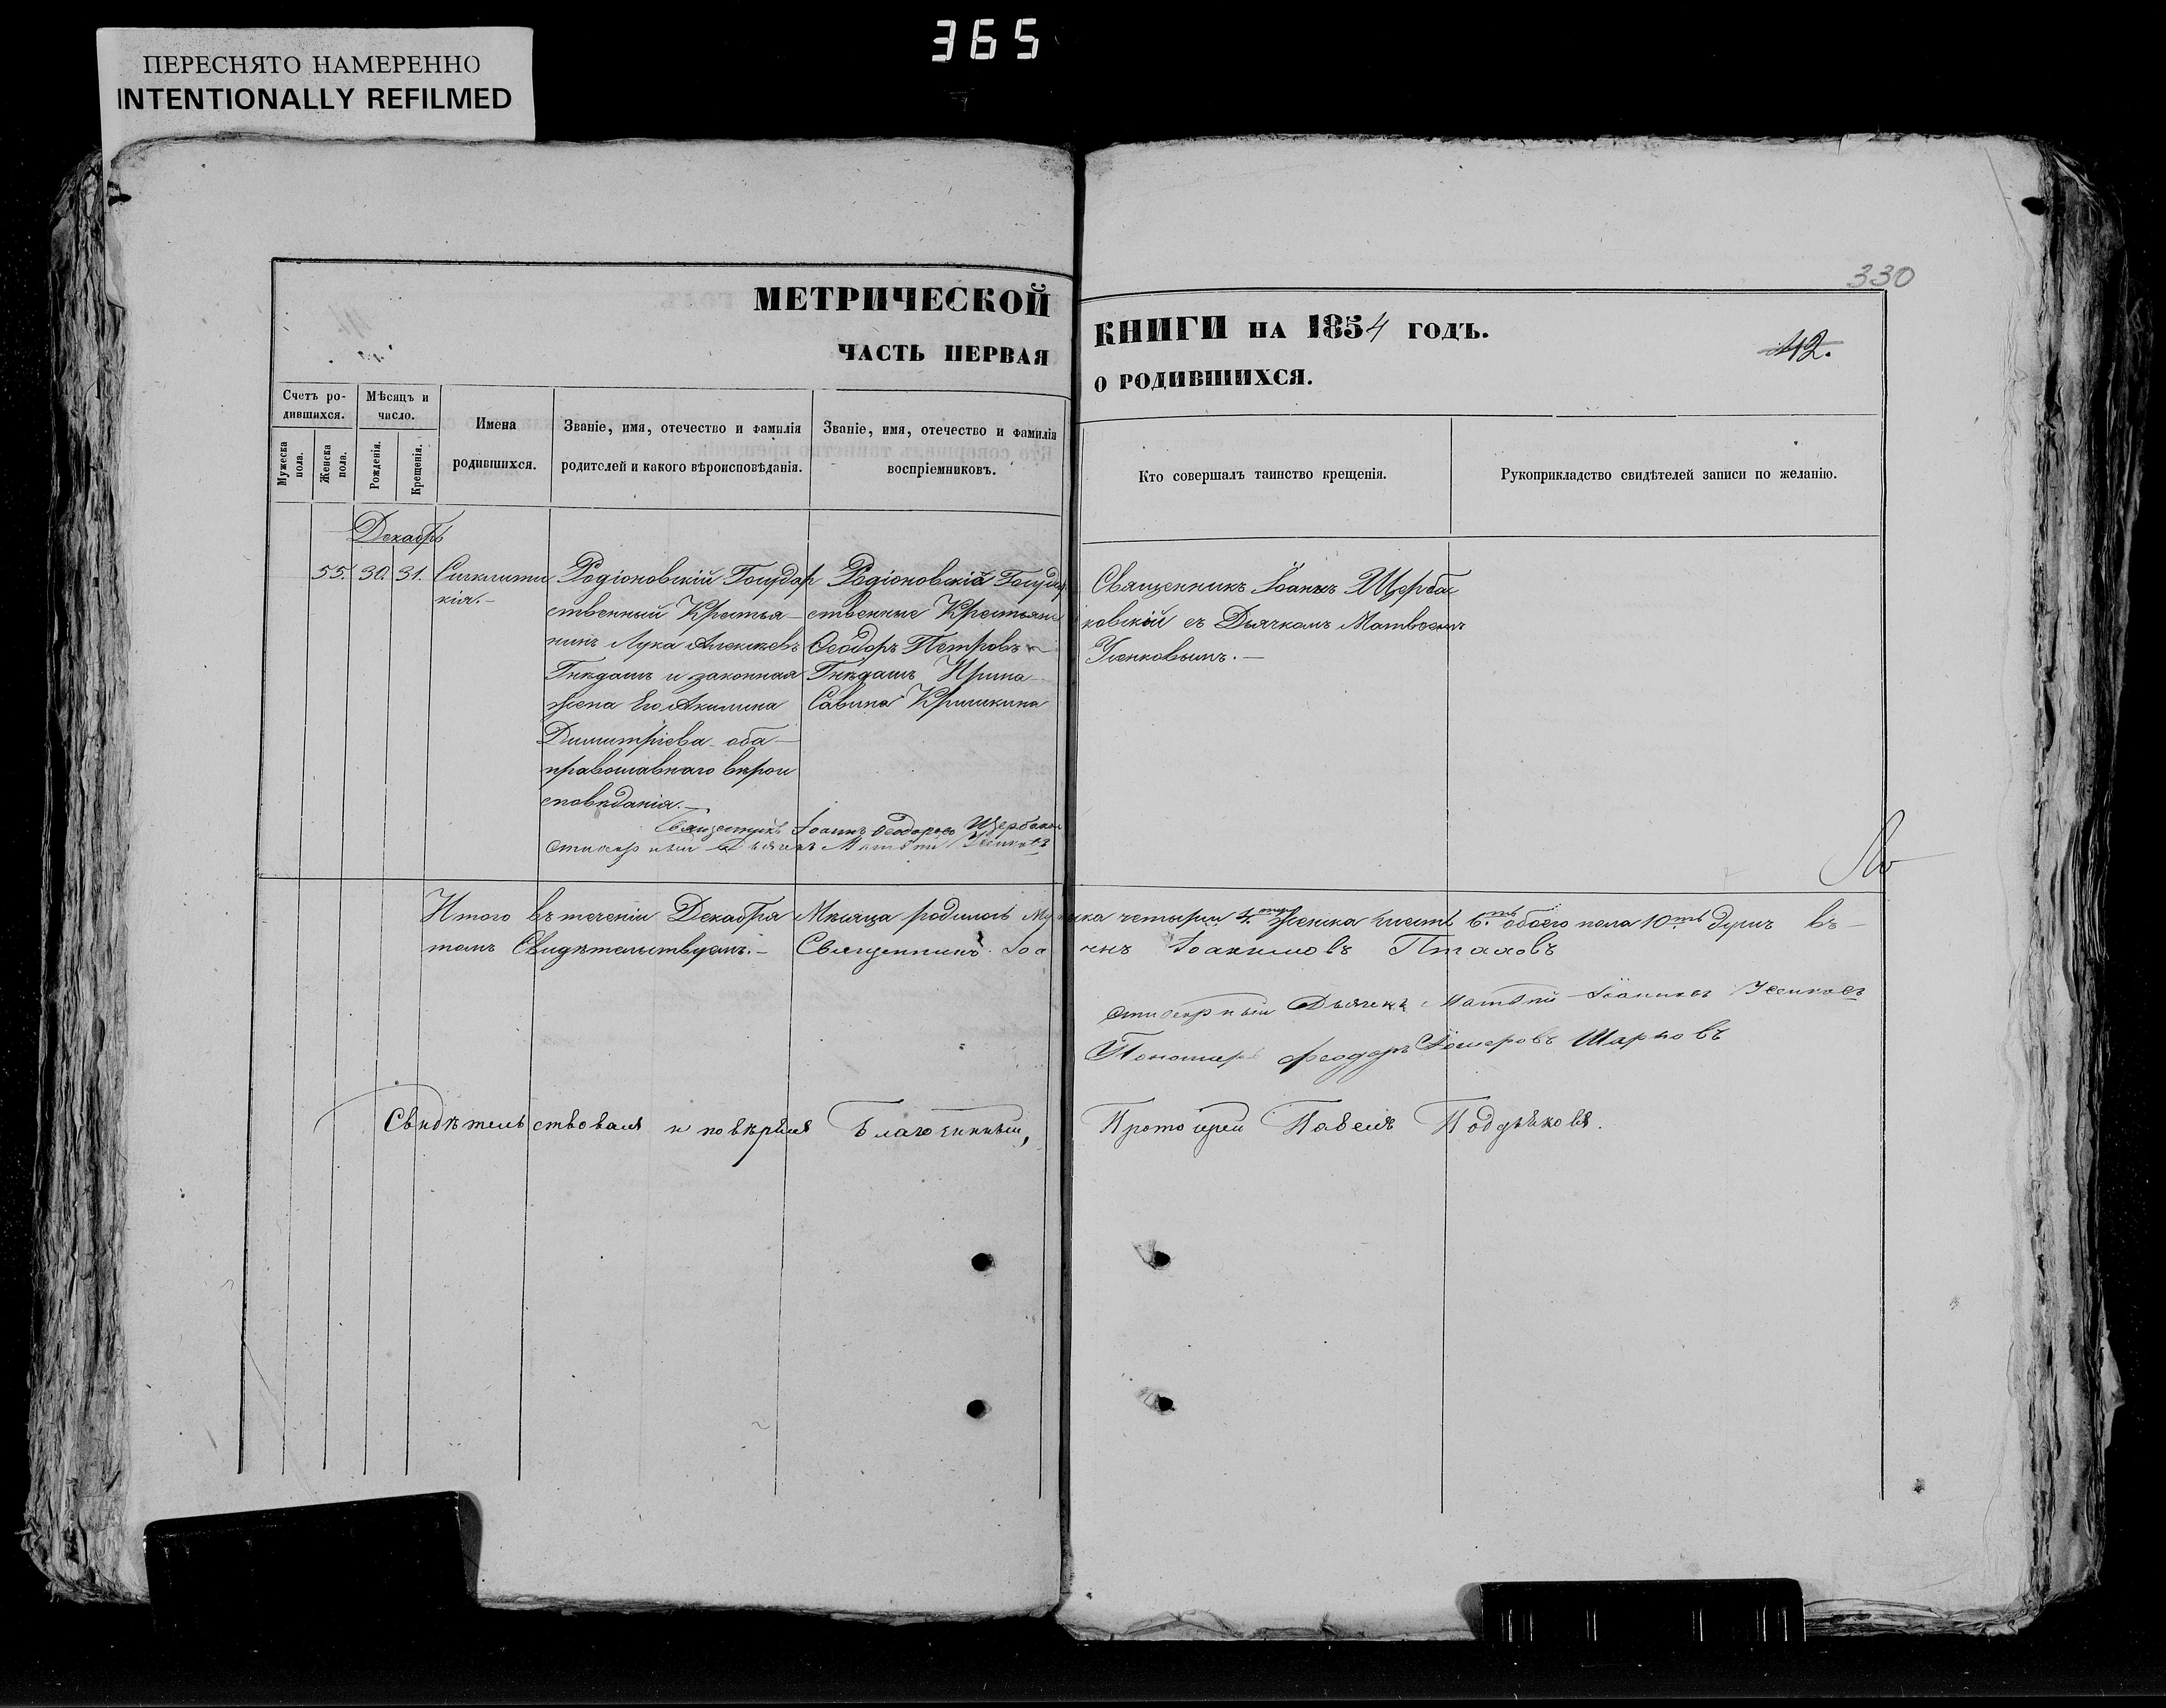 365
ПЕРЕСНЯТО НАМЕРЕННО
INTENTIONALLY REFILMED
330
МЕТРИЧЕСКОЙ КНИГИ НА 1854 ГОДЪ.
42.
ЧАСТЬ ПЕРВАЯ О РОДИВШИХСЯ.
Счетъ ро-
дившихся.
Мужеска пола.
Женска пола.
Мѣсяцъ и
число.
Рожденія.
Крещенія.
Имена
родившихся.
Званіе, имя, отечество и фамилія
родителей и какого вѣроисповѣданія.
Званіе, имя, отечество и фамилія
воспріемниковъ.
Кто совершалъ таинство крещенія.
Рукоприкладство свидѣтелей записи по желанію.
Декабрь
55. 30. 31.
Сигклити
кія.-
Родіоновскій Государ
ственный Крестья-
нинъ Лука Алексѣевъ
Гнѣдашъ и законная
жена Его Акилина
Димитріева оба-
православнаго вѣрои
сповѣданія.-
Родіоновскіе Государ
ственные Крестьяне
Ѳеодоръ Петровъ
Гнѣдашъ Ирина
Савина Кришкина
Священникъ Іоаннъ Щерба
ковскій съ Дьячкомъ Матвѣемъ
Усенковымъ.-
Священникъ Іоаннъ Ѳеодоровъ Щербаков
Дьячекъ Матвій Усенковъ
Итого въ теченіи Декабря Мѣсяца родилось Мужеска четыри 4. Женска шесть 6. обоего пола 10ть душъ въ-
томъ Свидѣтельствуемъ.- Священникъ Іоаннъ Іоакимовъ Пталовъ
Дьячекъ Матвій Усенковъ
Пономарь Феодоръ Шарковъ
Свидѣтельствовалъ и повѣрялъ Благочинный, Протоіерей Павелъ Поддубковъ.